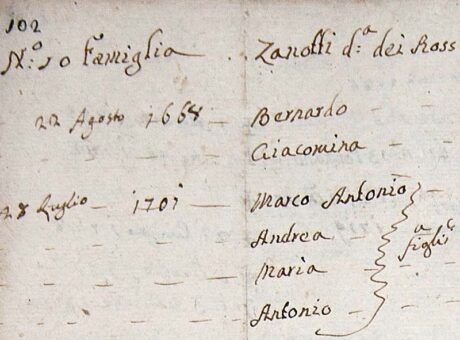 102
N:º 10 Famiglia Zanotti d:ª dei Ross
22 Agosto 1668 Bernardo
Giacomina
28 Luglio 1701 Marco Antonio
Andrea
Maria
Antonio
a
figli